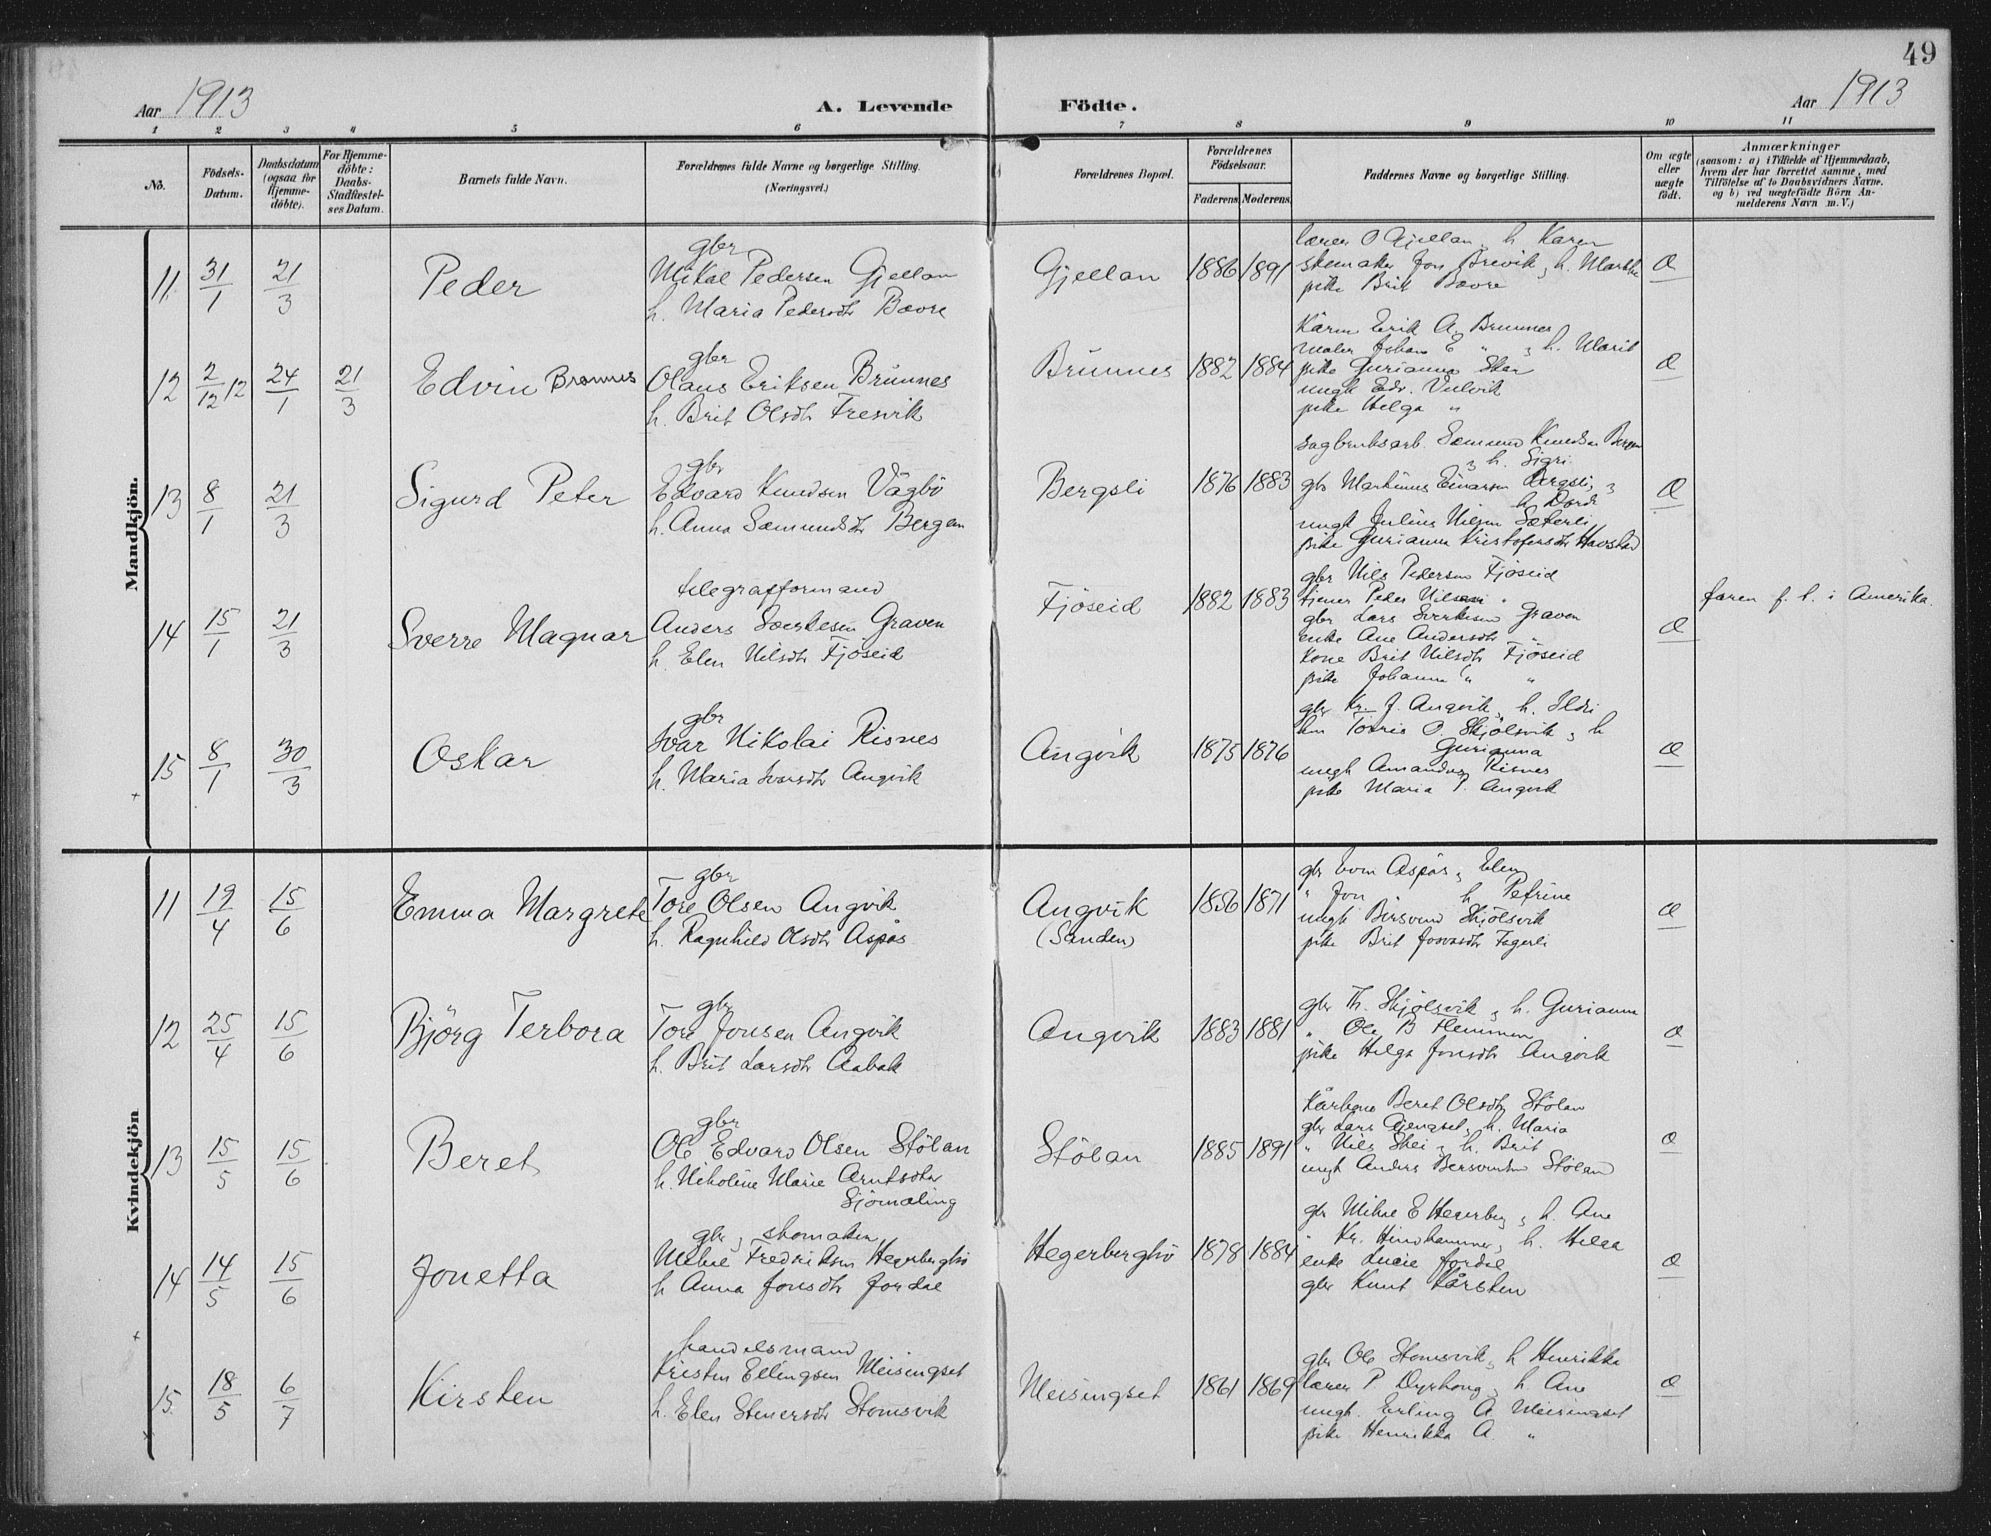 49
Aar 1913
A. Levende Födte.
Aar 1913
1 2 3 4 5 6 7 8 9 10 11
No.
Födsels-
Datum.
Daabsdatum
(ogsaa for
Hjemme-
döbte).
For Hjemme-
döbte:
Daabs-
Stadfæstel-
ses Datum.
Barnets fulde Navn.
Forældrenes fulde Navne og borgerlige Stilling.
(Næringsvei.)
Forældrenes Bopæl.
Forældrenes
Födselsaar.
Faderens
Moderens
Faddernes Navne og borgerlige Stilling.
Om ægte
eller
uægte
födt.
Anmærkninger
(saasom: a) i Tilfælde af Hjemmedaab,
hvem der har forrettet samme, med
Tilföielse af to Daabsvidners Navne.
og b) ved uægtefödte Börn An-
melderens Navn m. V.)
Mandkjön.
11 31/1 21/3
Peder
gbr
Mikal Pedersen Gjellan
h. Maria Pedersdtr Bævre
Gjellan
1886 1891
lærer O Gjellan, h. Karen
skomaker Jon Brevik, h. Marth
pike Brit Bævre
Æ
12 2/12 12 24/1 21/3
Edvin Brønnes
gbr
Olaus Eriksen Brünnes
h. Brit Olsdtr Fresvik
Brünnes
1882 1884
Kårm Erik A. Brunnes
maler Johan E " , h. Marit
pike Gurianna
ungk Edv. Vulvik
pike Helga "
Æ
13 8/1 21/3
Sigurd Peter
gbr
Edvard Knudsen Vågbö
h. Anna Sæmundsdtr Bergem
Bergsli
1876 1883
sagbruksarb. Sæmund Knudsen Bergem
, h. Sigri
gbr Martinus Einarsen Bergsli,
h Dordi
ungk Julius Nilsen Sæterli
pike Gurianna Kristofersdtr Havstad
Æ
14 15/1 21/3
Sverre Magnar
telegrafformand
Anders Sverkesen Graven
h. Elen Nilsdtr Fjöseid
Fjöseid
1882 1883
gbr Nils Pedersen Fjöseid
tjener Peder Nilsen "
gbr Lars Sverkesen Graven
enke Ane Andersdtr "
Kone Brit Nilsdtr Fjöseid
pike Johanna " "
Æ
faren f. t. i Amerika.
15 8/1 30/3
Oskar
gbr
Ivar Nikolai Risnes
h. Maria Ivarsdtr Angvik
Angvik
1875 1876
gbr Kr. J. Angvik, h. Ildri
Torris O. Skjölsvik, h
Gurianna
ungk Amandus Risnes
pike Maria P. Angvik
Æ
Kvindekjön
11 19/4 15/6
Emma Margrete
gbr
Tore Olsen Angvik
h. Ragnhild Olsdtr Aspås
Angvik
(Sanden)
1856 1871
gbr Even Aspås, Elen
" Jon h Petrine
ungk Bersvend Skjölsvik
pike Brit Fagerli
Æ
12 25/4 15/6
Björg Terbora
gbr
Tore Jonsen Angvik
h. Brit Larsdtr Aabak
Angvik
1883 1881
gbr Th. Skjölsvik, h. Gurianna
" Ole B Flemmen
pike Helga Jonsdtr Angvik
Æ
13 15/5 15/6
Beret
gbr
Ole Edvard Olsen Stölan
h. Nikoline Marie Arntsdtr
Sjömæling
Stölan
1885 1891
Kårkone Beret Olsdtr Stölan
gbr Lars Gjengset, h. Maria
" Nils Skei, h. Brit
ungk Anders Bersvendsen Stölan
Æ
14 14/5 15/6
Jonetta
gbr, skomaker
Mikal Fredriksen Hegerbergbö
h Anna Jonsdtr Jordal
Hegerbergbö
1878 1884
gbr Mikal E Hegerberg, h. Ane
" Kr. Hindhammer, h. Helga
enke Lucie Jordal
gbr Knut Kårsten
Æ
15 18/5 6/7
Kirsten
handelsmand
Kristen Ellingsen Meisingset
h. Elen Steneresdtr Stomsvik
Meisingset
1861 1869
gbr Ole Stomsvik, h Henrikka
lærer P Dyrhaug, h. Ane
ungk. Erling A Meisingset
pike Henrikka A. "
Æ